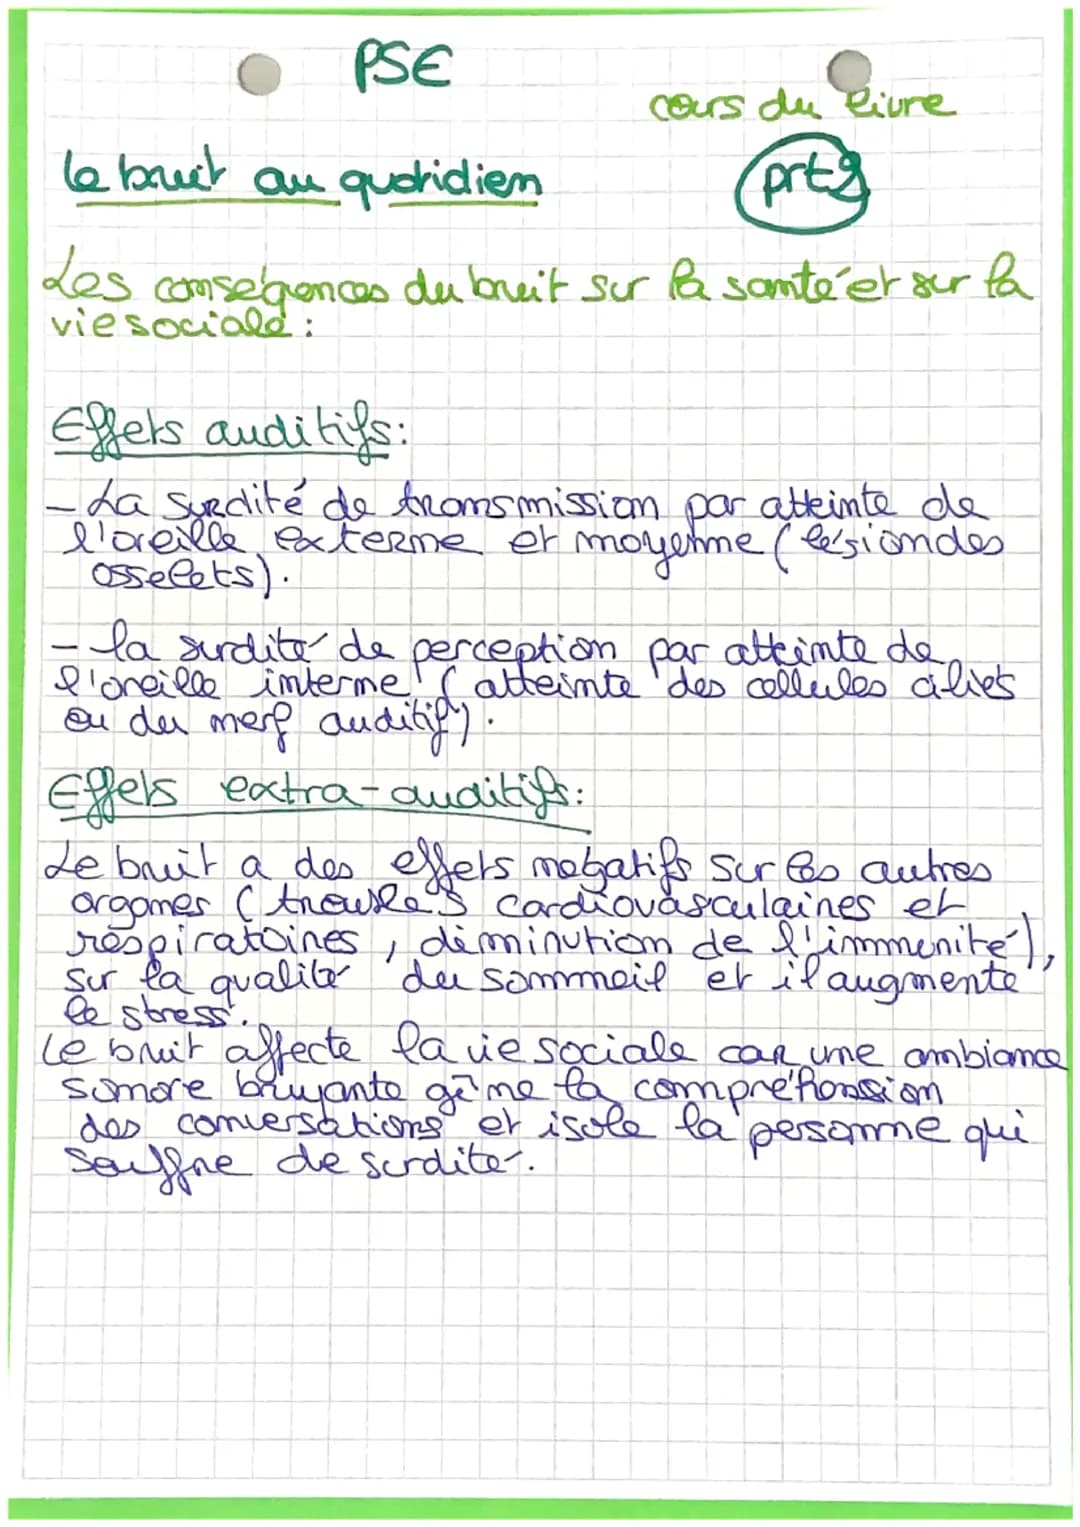 PSE
cours du livre
le bruit au quotidien
prt2
Les conséquences du bruit sur la santé et sur la
vie sociale :
Effets auditifs :
- La surdité de transmission par atteinte de
l'oreille externe et moyenne (lésion des
osselets).
- la surdité de perception par atteinte de
l'oreille interne (atteinte des cellules ciliés
ou du nerf auditif).
Effets extra-auditifs :
Le bruit a des effets négatifs sur les autres
organes (troubles cardiovasculaires et
respiratoires, diminution de l'immunité),
sur la qualité du sommeil et il augmente
le stress.
Le bruit affecte la vie sociale car une ambiance
sonore bruyante gêne la compréhension
des conversations et isole la personne qui
souffre de surdité.